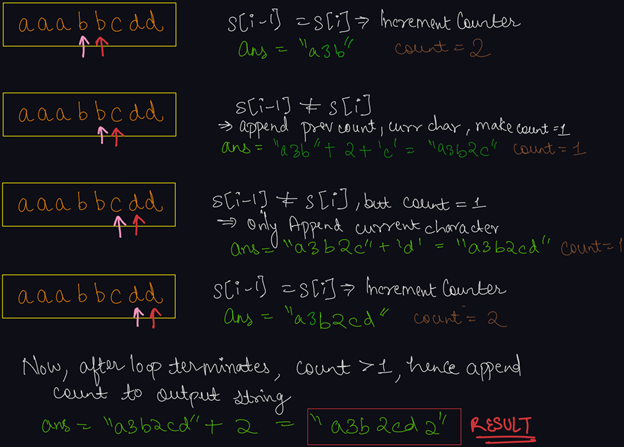 a a a b b c d d
s[i-1] = s[i] ⇒ Increment Counter
ans = "a3b" count = 2
a a a b b c d d
s[i-1] ≠ s[i]
⇒ append prev count, curr char, make count=1
ans = "a3b" + 2 + 'c' = "a3b2c" count = 1
a a a b b c d d
s[i-1] ≠ s[i], but count = 1
⇒ Only Append current character
ans= "a3b2c" + 'd' = "a3b2cd" count = 1
a a a b b c d d
s[i-1] = s[i] ⇒ Increment Counter
ans = "a3b2cd" count = 2
Now, after loop terminates, count >1, hence append
count to output string
ans = "a3b2cd" + 2 = "a3b2cd2" RESULT